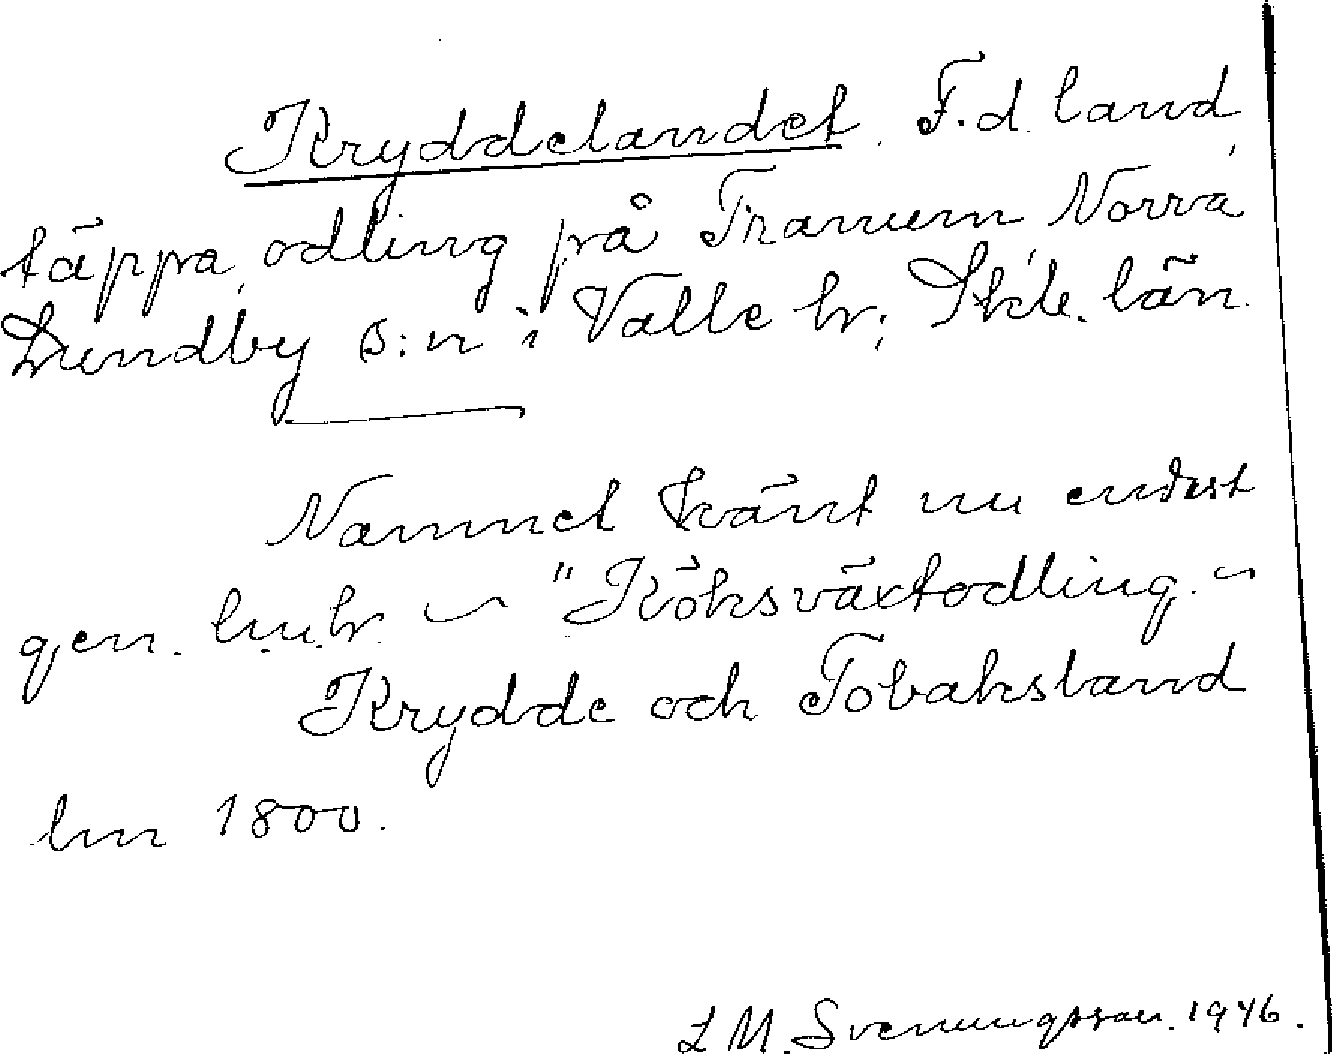 Kryddelandet. F.d. land,
täppa, odling på Tranum Norra
Lundby s:n i Valle hr; Skbg. län.
Namnet känt nu endast
gen. lm.hr. ~ "Köksväxtodling. ~
Krydde och Tobaksland
lm 1800.
L M. Svenungsson. 1946.